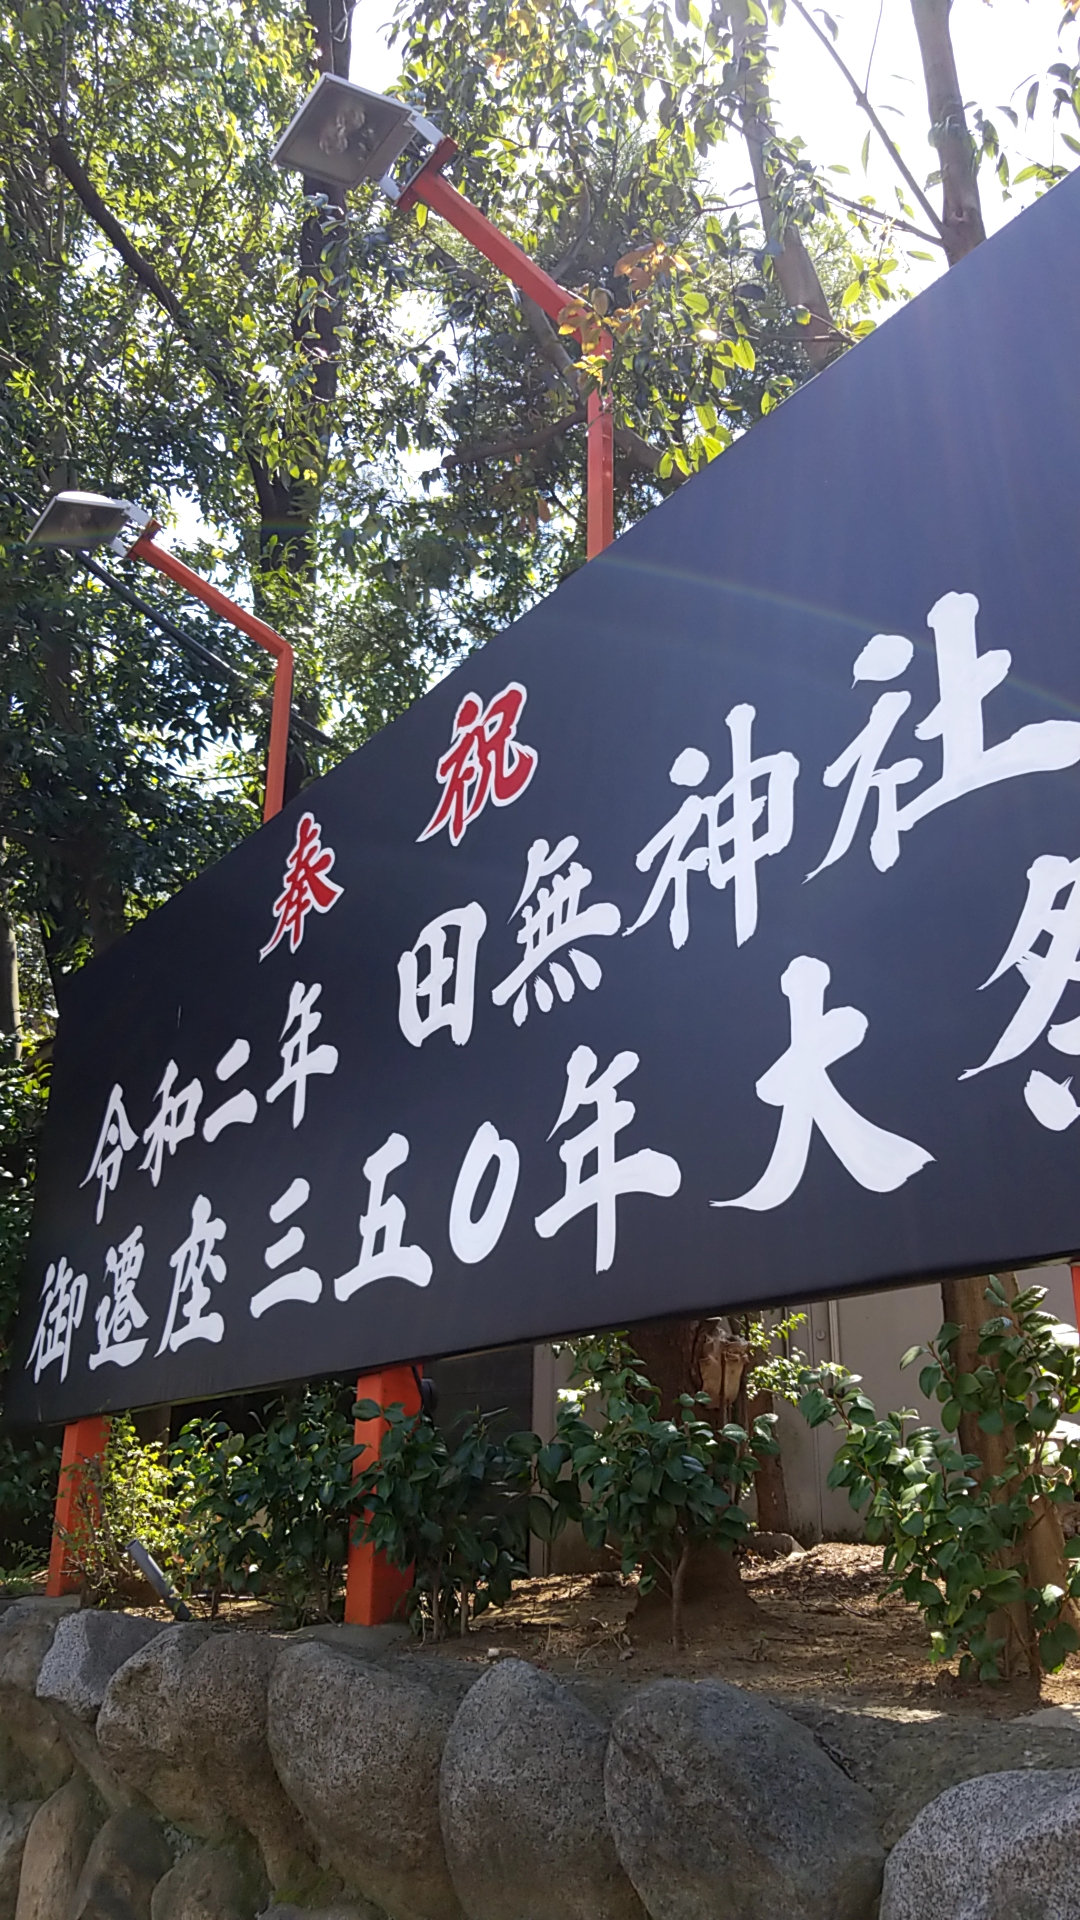 奉祝
令和二年 田無神社
御遷座三五〇年大祭